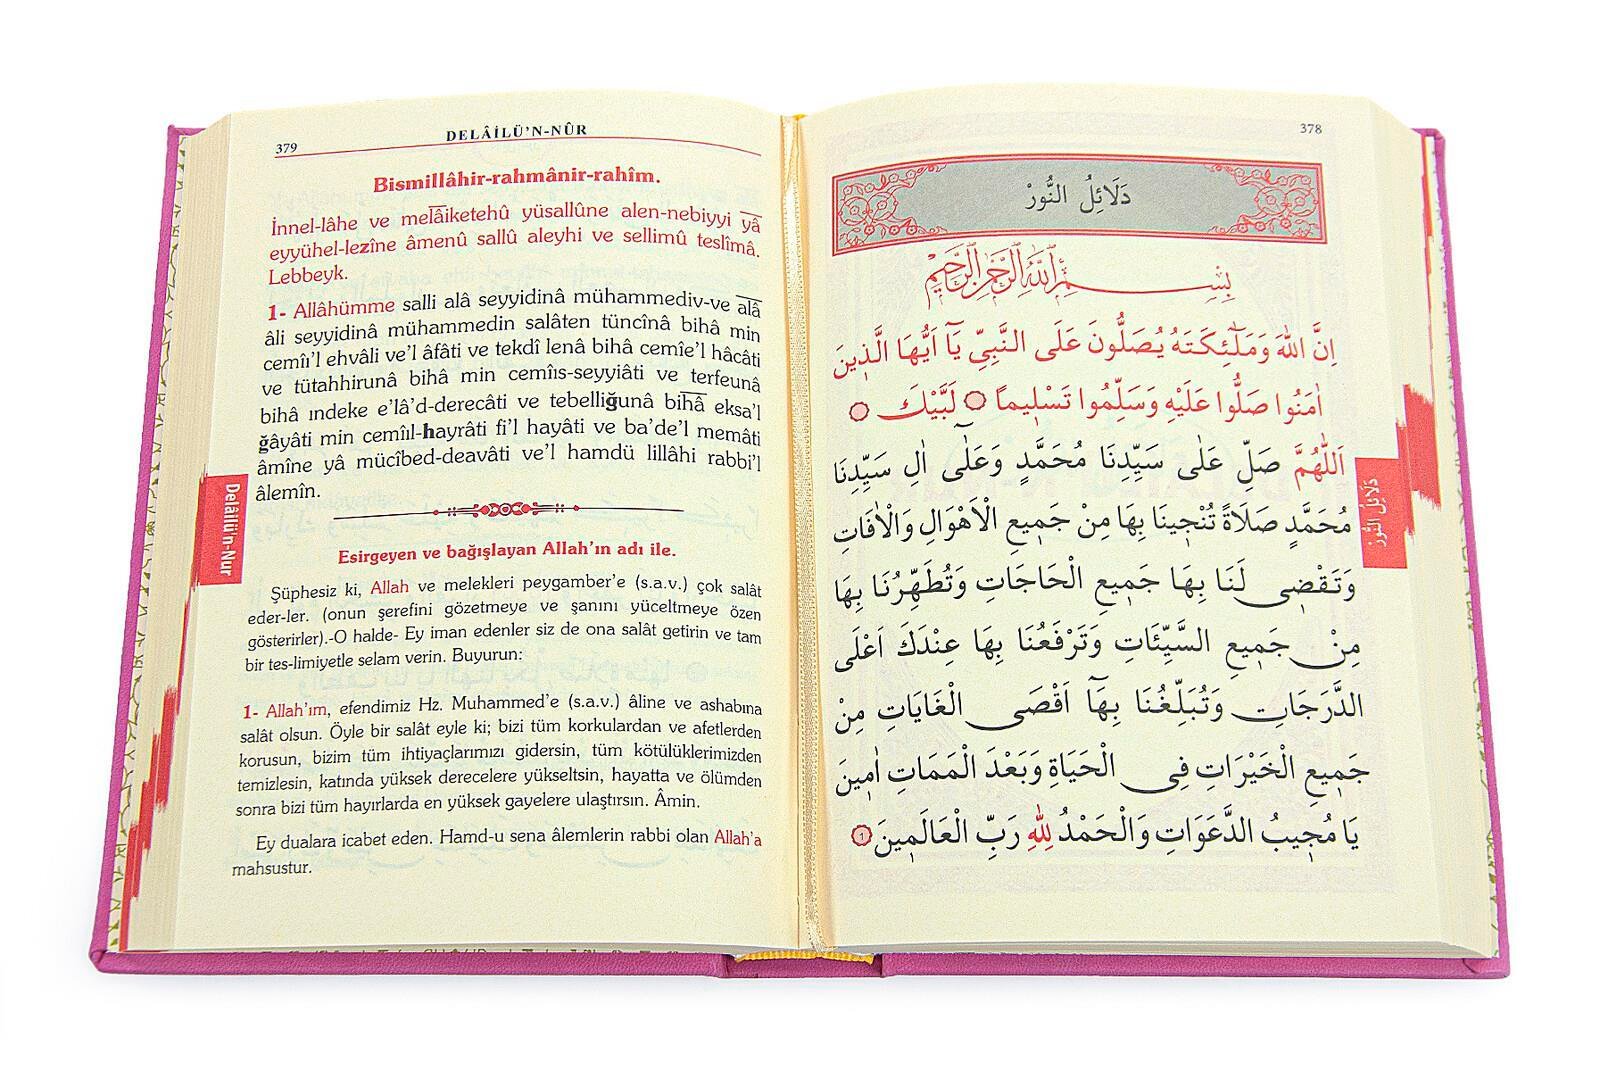 379
DELÂİLÜ'N-NÛR
Bismillâhir-rahmânir-rahîm.
İnnel-lâhe ve melâiketehû yüsallûne alen-nebiyyi yâ
eyyühel-lezîne âmenû sallû aleyhi ve sellimû teslîmâ.
Lebbeyk.
1- Allâhümme salli alâ seyyidinâ mühammediv-ve alâ
âli seyyidinâ mühammedin salâten tüncînâ bihâ min
cemîi'l ehvâli ve'l âfâti ve tekdî lenâ bihâ cemîe'l hâcâti
ve tütahhirunâ bihâ min cemîıs-seyyiâti ve terfeunâ
bihâ ındeke e'lâ'd-derecâti ve tebelliğunâ bihâ eksa'l
ğâyâti min cemîıl-hayrâti fi'l hayâti ve ba'de'l memâti
âmîne yâ mücîbed-deavâti ve'l hamdü lillâhi rabbi'l
âlemîn.
Esirgeyen ve bağışlayan Allah'ın adı ile.
Şüphesiz ki, Allah ve melekleri peygamber'e (s.a.v.) çok salât
eder-ler. (onun şerefini gözetmeye ve şanını yüceltmeye özen
gösterirler).-O halde- Ey iman edenler siz de ona salât getirin ve tam
bir tes-limiyetle selam verin. Buyurun:
1- Allah'ım, efendimiz Hz. Muhammed'e (s.a.v.) âline ve ashabına
salât olsun. Öyle bir salât eyle ki; bizi tüm korkulardan ve afetlerden
korusun, bizim tüm ihtiyaçlarımızı gidersin, tüm kötülüklerimizden
temizlesin, katında yüksek derecelere yükseltsin, hayatta ve ölümden
sonra bizi tüm hayırlarda en yüksek gayelere ulaştırsın. Âmin.
Ey dualara icabet eden. Hamd-u sena âlemlerin rabbi olan Allah'a
mahsustur.
Delâilü'n-Nur
378
دَلَائِلُ النُّورْ
بِسْمِ اللهِ الرَّحْمٰنِ الرَّحِيمِ
اِنَّ اللهَ وَمَلٰٓئِكَتَهُ يُصَلُّونَ عَلَى النَّبِيِّ يَٓا اَيُّهَا الَّذِينَ
اٰمَنُوا صَلُّوا عَلَيْهِ وَسَلِّمُوا تَسْلِيمًا لَبَّيْكَ
اَللّٰهُمَّ صَلِّ عَلٰى سَيِّدِنَا مُحَمَّدٍ وَعَلٰٓى اٰلِ سَيِّدِنَا
مُحَمَّدٍ صَلَاةً تُنْجِينَا بِهَا مِنْ جَمِيعِ الْاَهْوَالِ وَالْاٰفَاتِ
وَتَقْضِى لَنَا بِهَا جَمِيعِ الْحَاجَاتِ وَتُطَهِّرُنَا بِهَا
مِنْ جَمِيعِ السَّيِّئَاتِ وَتَرْفَعُنَا بِهَا عِنْدَكَ اَعْلَى
الدَّرَجَاتِ وَتُبَلِّغُنَا بِهَٓا اَقْصَى الْغَايَاتِ مِنْ
جَمِيعِ الْخَيْرَاتِ فِى الْحَيَاةِ وَبَعْدَ الْمَمَاتِ اٰمِينَ
يَا مُجِيبُ الدَّعَوَاتِ وَالْحَمْدُ لِلّٰهِ رَبِّ الْعَالَمِينَ ١
دَلَائِلُ النُّورْ